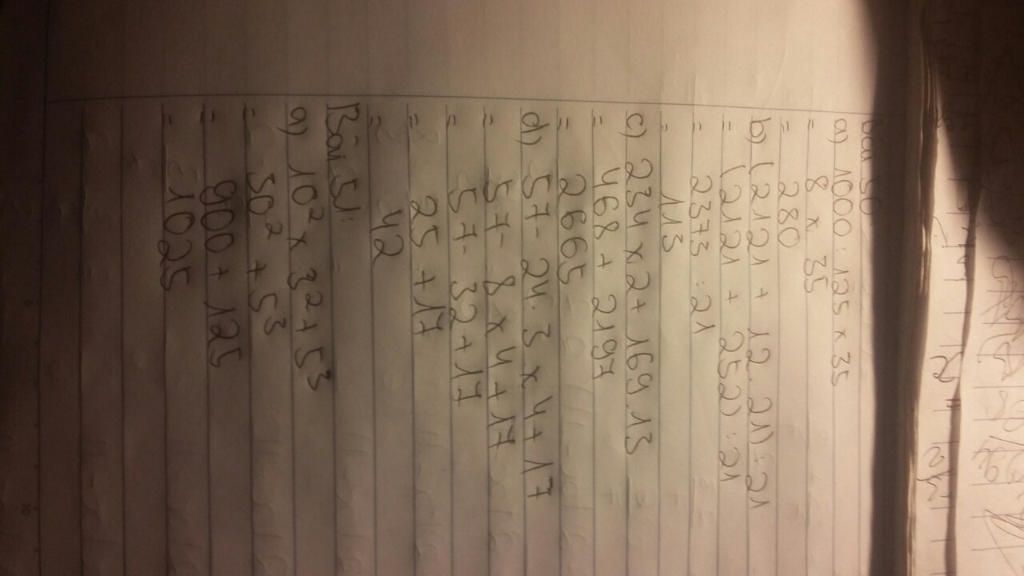 Bài 50
a) 1000 : 125 x 35
= 8 x 35
= 280
b) (2121 + 12 . 21) : 21
= (2121 + 252) : 21
= 2373 : 21
= 113
c) 234 x 2 + 169 . 13
= 468 + 2197
= 2665
d) 57 - 24 : 3 x 4 + 17
= 57 - 8 x 4 + 17
= 57 - 32 + 17
= 25 + 17
= 42
Bài 51:
a) 10² x 3² + 5³
= 30² + 5³
= 900 + 125
= 1025